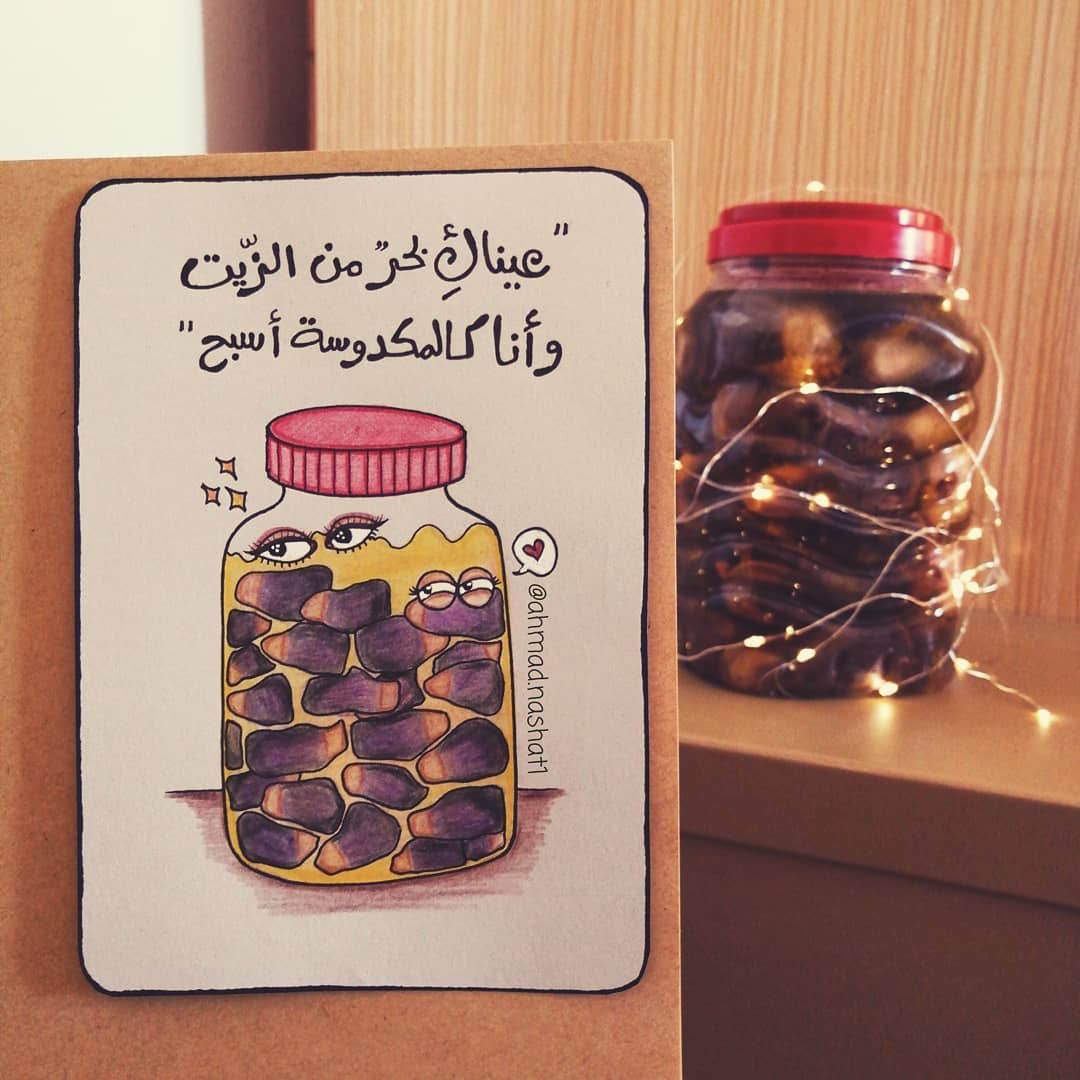 "عيناكِ بحرٌ من الزّيت
وأنا كالمكدوسة أسبح"
@ahmad.nashat1